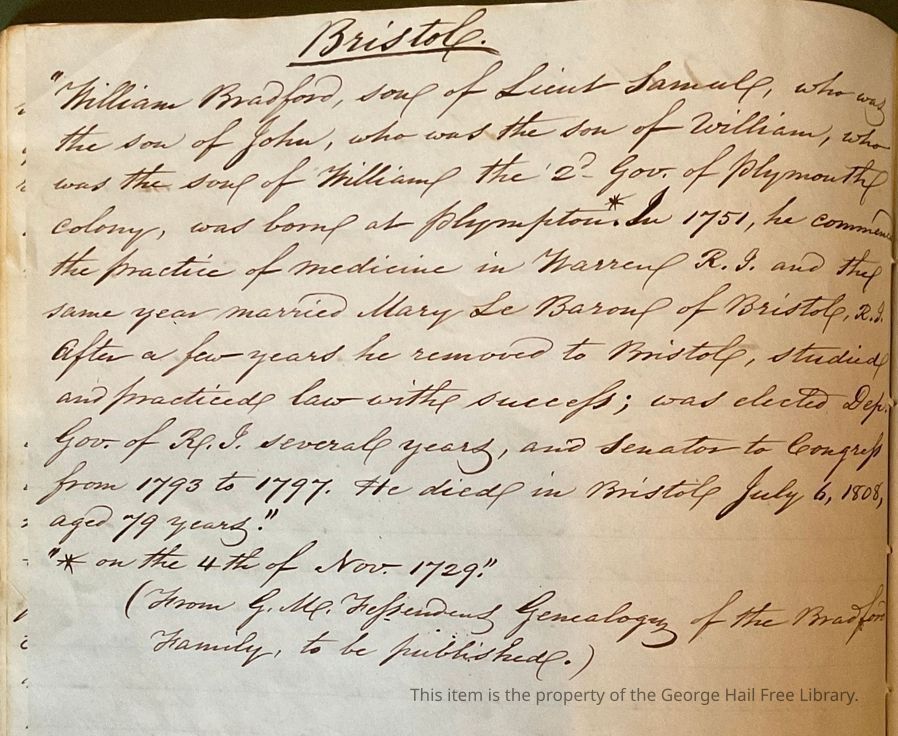 Bristol.
"William Bradford, son of Lieut Samuel, who was
the son of John, who was the son of William, who
was the son of William the 2d Gov. of Plymouth
colony, was born at Plympton.* In 1751, he commenc
the practice of medicine in Warren R. I. and the
same year married Mary Le Baron of Bristol, R.I.
After a few years he removed to Bristol, studied
and practiced law with success; was elected Dep.
Gov. of R. I. several years, and Senator to Congress
from 1793 to 1797. He died in Bristol July 6, 1808,
aged 79 years."
"* on the 4th of Nov. 1729."
(From G. M. Fessenden's Genealogy of the Bradford
Family, to be published.)
This item is the property of the George Hail Free Library.